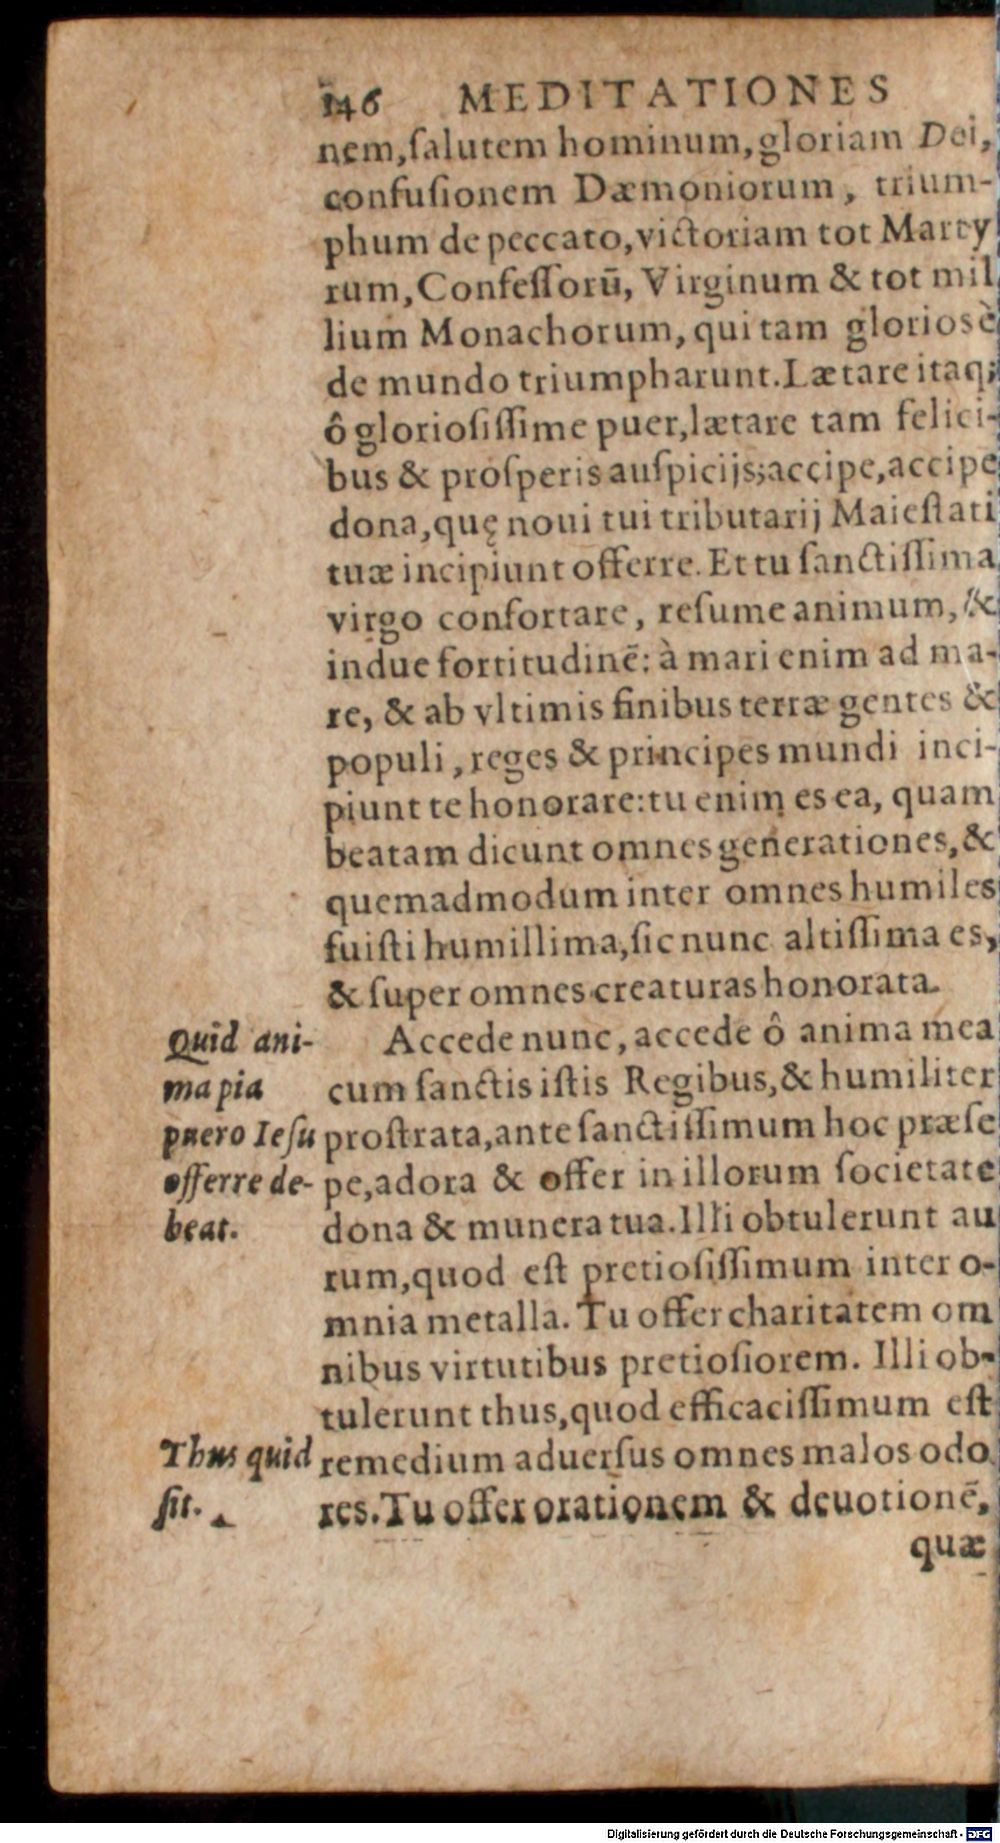 146 MEDITATIONES
nem,ſalutem hominum,gloriam Dei,
confuſionem Dæmoniorum, trium-
phum de peccato,victoriam tot Marty
rum,Confeſſorū, Virginum & tot mil
lium Monachorum, qui tam gloriosè
de mundo triumpharunt.Lætare itaq;
ô glorioſiſſime puer,lætare tam felici-
bus & proſperis auſpicijs;accipe,accipe
dona,quę noui tui tributarij Maieſtati
tuæ incipiunt offerre. Et tu ſanctiſſima
virgo confortare, reſume animum, &
indue fortitudinē: à mari enim ad ma-
re, & ab vltimis finibus terræ gentes &
populi, reges & principes mundi inci-
piunt te honorare:tu enim es ea, quam
beatam dicunt omnes generationes, &
quemadmodum inter omnes humiles
fuiſti humillima,ſic nunc altiſſima es,
& ſuper omnes creaturas honorata.
Accede nunc, accede ô anima mea
cum ſanctis iſtis Regibus, & humiliter
proſtrata,ante ſanctiſſimum hoc præſe
pe,adora & offer in illorum ſocietate
dona & munera tua.Illi obtulerunt au
rum,quod eſt pretioſiſſimum inter o-
mnia metalla. Tu offer charitatem om
nibus virtutibus pretioſiorem. Illi ob-
tulerunt thus,quod efficaciſſimum eſt
remedium aduerſus omnes malos odo
res.Tu offer orationem & deuotionē,
quæ
Quid ani-
ma pia
puero Ieſu
offerre de-
beat.
Thus quid
ſit.
Digitalisierung gefördert durch die Deutsche Forschungsgemeinschaft - DFG